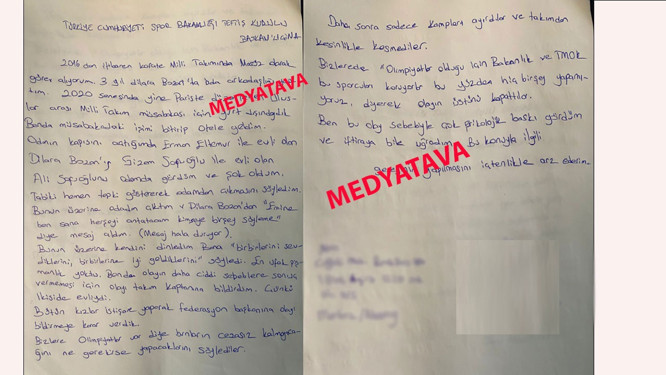 TÜRKİYE CUMHURİYETİ SPOR BAKANLIĞI TEFTİŞ KURULU
BAŞKANLIĞINA
2016 dan itibaren karate Milli Takımında Masöz olarak
görev alıyorum. 3 yıl Dilara Bozan'la oda arkadaşlığı
tım. 2020 senesinde yine Pariste
lar arası Milli Takım müsabakası için yurt dışındaydık
Bende müsabakadaki işimi bitirip otele geldim.
Odanın kapısını açtığımda Erman Eltemur ile evli olan
Dilara Bozan'ı Gizem Şofuoğlu ile evli olan
Ali Şofuoğlunu odamda gördüm ve şok oldum.
Tabiki hemen tepki göstererek odamdan çıkmasını söyledim.
Bunun üzerine odadan çıktım ve Dilara Bozan'dan "Emine
ben sana herşeyi anlatacam kimseye birşey söyleme"
diye mesaj aldım. (Mesaj hala duruyor).
Bunun üzerine kendini dinledim Bana "birbirlerini sev-
diklerini, birbirlerine iyi geldiklerini" söyledi. En ufak piş-
manlık yoktu. Bende olayın daha ciddi sebeblere sonuç
vermemesi için olayı takım kaptanına bildirdim. Çünkü
ikiside evliydi.
Bütün kızlar istişare yaparak federasyon başkanına olayı
bildirmeye karar verdik.
Bizlere Olimpiyatlar var diye bunların cezasız kalmayaca-
ğını ne gerekirse yapacaklarını söylediler.
MEDYATAVA
Daha sonra sadece kampları ayırdılar ve takımdan
kesinlikle kesmediler.
Bizlerede "Olimpiyatlar olduğu için Bakanlık ve TMOK
bu sporcuları koruyorlar bu yüzden hiç birşey yapamı-
yoruz, diyerek olayın üstünü kapattılar.
Ben bu olay sebebiyle çok psikolojik baskı gördüm
ve iftiraya bile uğradım. Bu konuyla ilgili
yapılmasını içtenlikle arz ederim.
MEDYATAVA